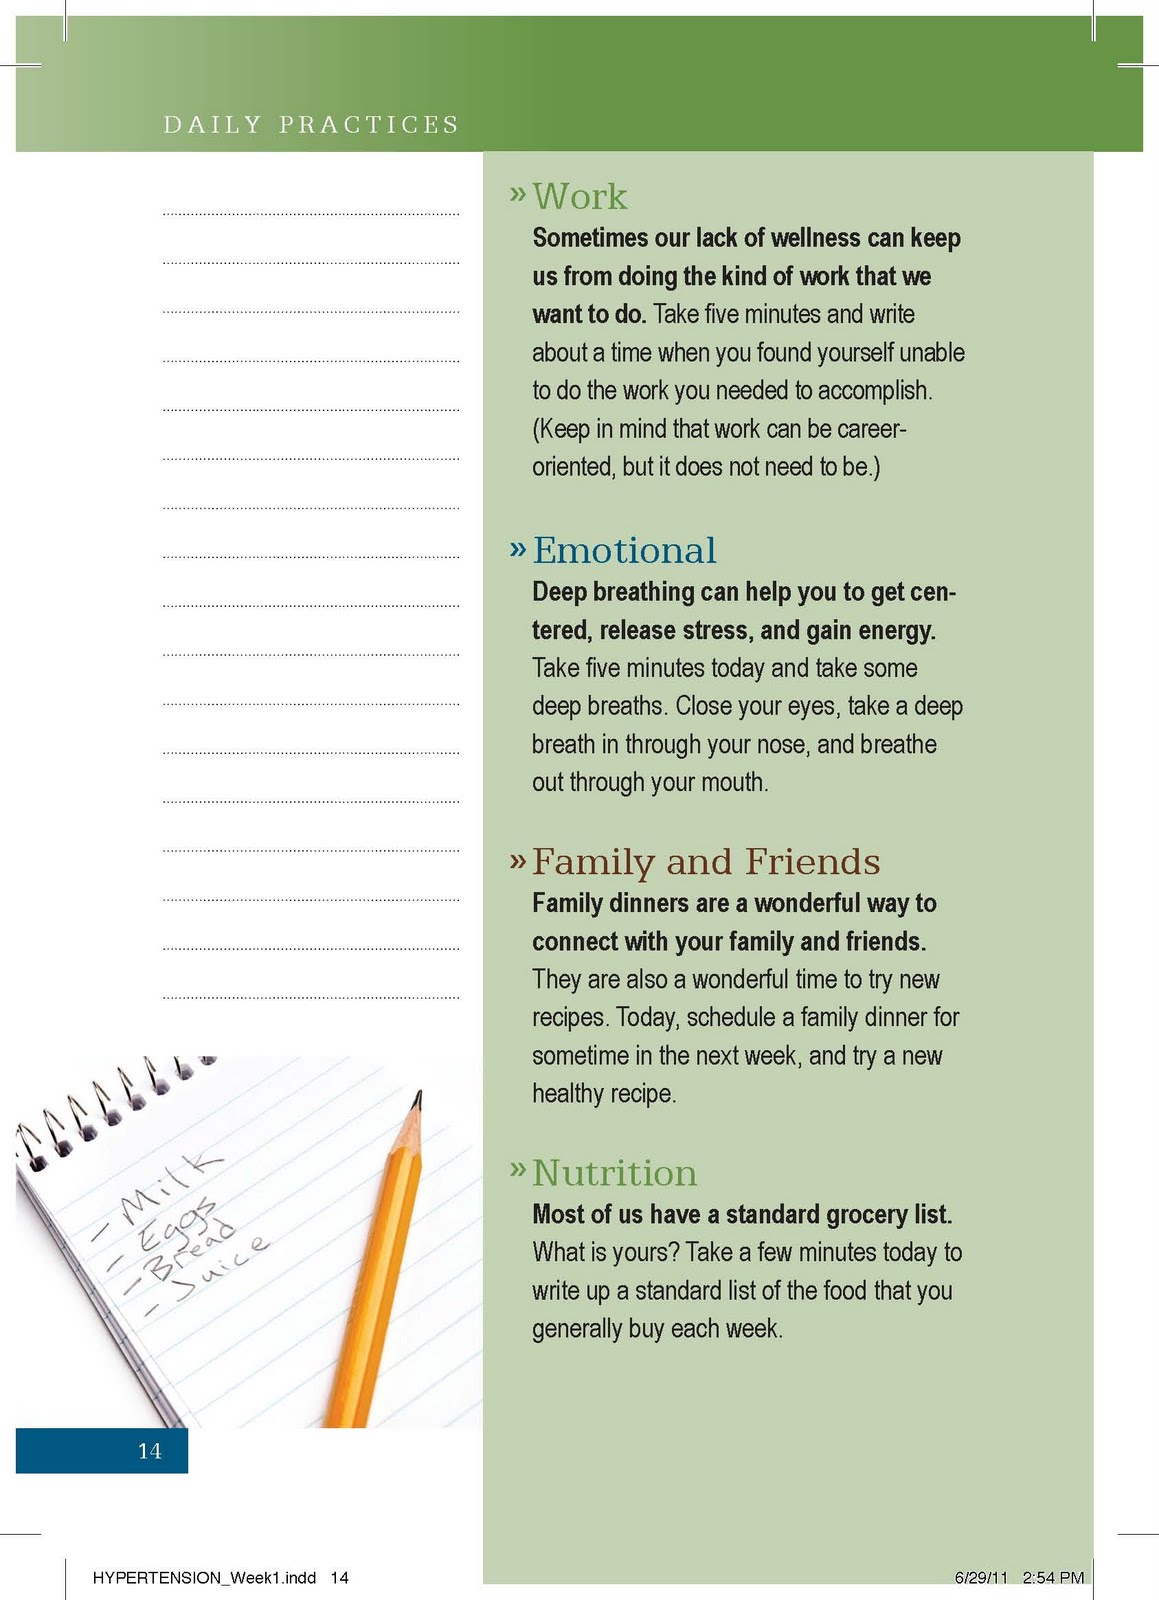 DAILY PRACTICES
» Work
Sometimes our lack of wellness can keep
us from doing the kind of work that we
want to do. Take five minutes and write
about a time when you found yourself unable
to do the work you needed to accomplish.
(Keep in mind that work can be career-
oriented, but it does not need to be.)
» Emotional
Deep breathing can help you to get cen-
tered, release stress, and gain energy.
Take five minutes today and take some
deep breaths. Close your eyes, take a deep
breath in through your nose, and breathe
out through your mouth.
» Family and Friends
Family dinners are a wonderful way to
connect with your family and friends.
They are also a wonderful time to try new
recipes. Today, schedule a family dinner for
sometime in the next week, and try a new
healthy recipe.
» Nutrition
Most of us have a standard grocery list.
What is yours? Take a few minutes today to
write up a standard list of the food that you
generally buy each week.
- Milk
- Eggs
- Bread
- Juice
14
HYPERTENSION_Week1.indd 14
6/29/11 2:54 PM